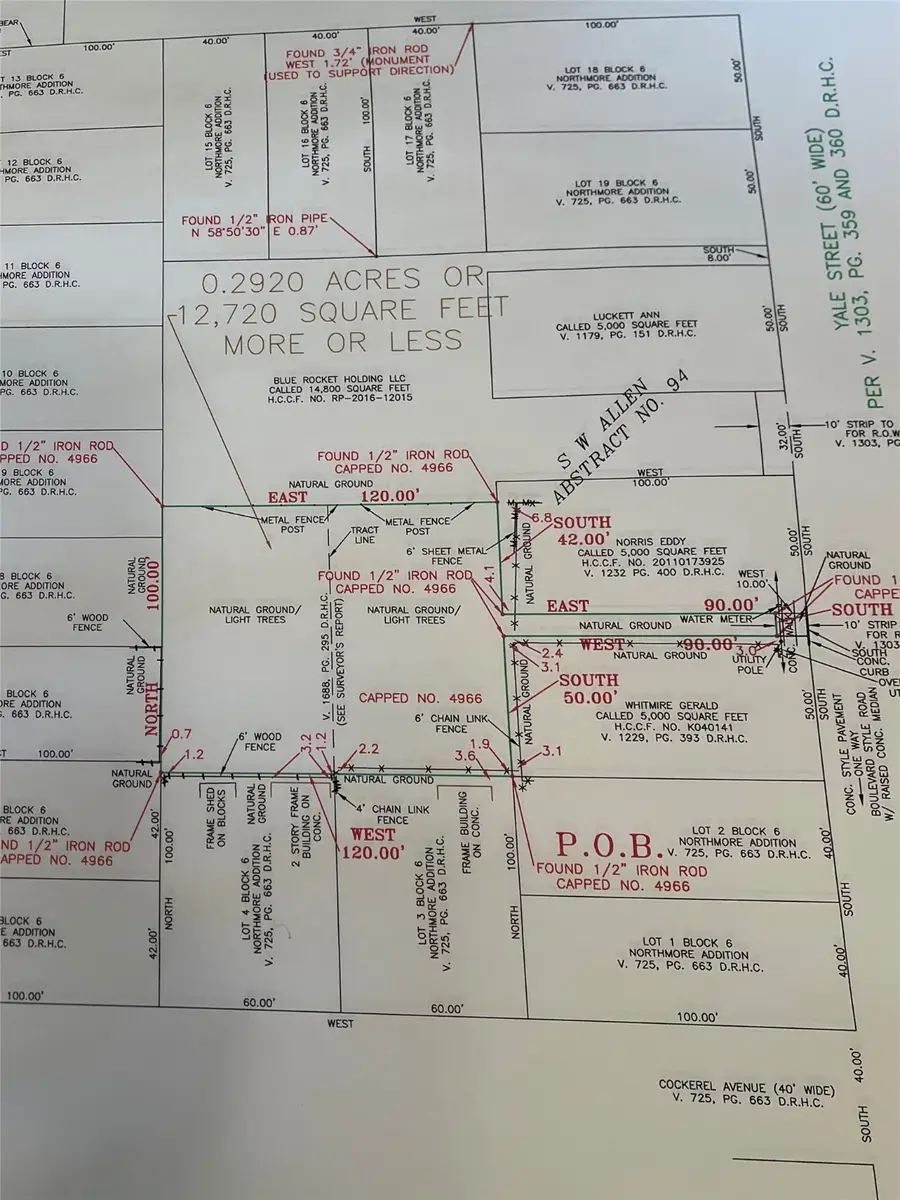 BEAR
WEST
100.00'
100.00'
40.00'
40.00'
40.00'
FOUND 3/4" IRON ROD
WEST 1.72' (MONUMENT
(USED TO SUPPORT DIRECTION)
13 BLOCK 6
ADDITION
PG. 663 D.R.H.C.
LOT 15 BLOCK 6
NORTHMORE ADDITION
V. 725, PG. 663 D.R.H.C.
LOT 16 BLOCK 6
NORTHMORE ADDITION
V. 725, PG. 663 D.R.H.C.
SOUTH 100.00'
LOT 17 BLOCK 6
NORTHMORE ADDITION
V. 725, PG. 663 D.R.H.C.
LOT 18 BLOCK 6
NORTHMORE ADDITION
V. 725, PG. 663 D.R.H.C.
50.00'
SOUTH
YALE STREET (60' WIDE)
PER V. 1303, PG. 359 AND 360 D.R.H.C.
12 BLOCK 6
ADDITION
PG. 663 D.R.H.C.
LOT 19 BLOCK 6
NORTHMORE ADDITION
V. 725, PG. 663 D.R.H.C.
50.00'
FOUND 1/2" IRON PIPE
N 58°50'30" E 0.87'
SOUTH
8.00'
11 BLOCK 6
ADDITION
PG. 663 D.R.H.C.
0.2920 ACRES OR
12,720 SQUARE FEET
MORE OR LESS
LUCKETT ANN
CALLED 5,000 SQUARE FEET
V. 1179, PG. 151 D.R.H.C.
50.00'
SOUTH
10 BLOCK 6
ADDITION
PG. 663 D.R.H.C.
BLUE ROCKET HOLDING LLC
CALLED 14,800 SQUARE FEET
H.C.C.F. NO. RP-2016-12015
S W ALLEN
ABSTRACT NO. 94
32.00'
SOUTH
10' STRIP TO
FOR R.O.W
V. 1303, PG
1/2" IRON ROD
NO. 4966
FOUND 1/2" IRON ROD
CAPPED NO. 4966
9 BLOCK 6
ADDITION
PG. 663 D.R.H.C.
NATURAL GROUND
EAST 120.00'
METAL FENCE
POST
TRACT
LINE
METAL FENCE
POST
WEST
100.00'
6.8
SOUTH
42.00'
6' SHEET METAL
FENCE
NATURAL GROUND
4.1
NORRIS EDDY
CALLED 5,000 SQUARE FEET
H.C.C.F. NO. 20110173925
V. 1232 PG. 400 D.R.H.C.
50.00'
SOUTH
NATURAL
GROUND
8 BLOCK 6
ADDITION
PG. 663 D.R.H.C.
NATURAL
GROUND
100.00'
FOUND 1/2" IRON ROD
CAPPED NO. 4966
WEST
10.00'
FOUND 1
CAPPE
SOUTH
6' WOOD
FENCE
NATURAL GROUND/
LIGHT TREES
V. 1688, PG. 295 D.R.H.C.
(SEE SURVEYOR'S REPORT)
NATURAL GROUND/
LIGHT TREES
EAST 90.00'
NATURAL GROUND
WATER METER
10' STRIP
FOR R
V. 1303
WEST 90.00'
NATURAL GROUND
3.0
UTILITY
POLE
CONC. WALK
SOUTH
CONC.
CURB
2.4
3.1
NATURAL
GROUND
NORTH
BLOCK 6
ADDITION
PG. 663 D.R.H.C.
CAPPED NO. 4966
SOUTH
50.00'
NATURAL GROUND
WHITMIRE GERALD
CALLED 5,000 SQUARE FEET
H.C.C.F. NO. K040141
V. 1229, PG. 393 D.R.H.C.
50.00'
SOUTH
CONC. STYLE PAVEMENT
ONE WAY
BOULEVARD STYLE ROAD
W/ RAISED CONC. MEDIAN
6' CHAIN LINK
FENCE
0.7
1.2
6' WOOD
FENCE
3.2
1.2
2.2
1.9
3.6
3.1
100.00'
NATURAL
GROUND
NATURAL GROUND
BLOCK 6
ADDITION
663 D.R.H.C.
42.00'
100.00'
FRAME SHED
ON BLOCKS
NATURAL
GROUND
2 STORY FRAME
BUILDING ON
CONC.
4' CHAIN LINK
FENCE
FRAME BUILDING
ON CONC.
WEST
120.00'
100.00'
P.O.B.
LOT 2 BLOCK 6
NORTHMORE ADDITION
V. 725, PG. 663 D.R.H.C.
40.00'
1/2" IRON ROD
CAPPED NO. 4966
FOUND 1/2" IRON ROD
CAPPED NO. 4966
SOUTH
LOT 4 BLOCK 6
NORTHMORE ADDITION
V. 725, PG. 663 D.R.H.C.
LOT 3 BLOCK 6
NORTHMORE ADDITION
V. 725, PG. 663 D.R.H.C.
BLOCK 6
ADDITION
663 D.R.H.C.
42.00'
NORTH
NORTH
LOT 1 BLOCK 6
NORTHMORE ADDITION
V. 725, PG. 663 D.R.H.C.
40.00'
100.00'
60.00'
60.00'
100.00'
WEST
COCKEREL AVENUE (40' WIDE)
V. 725, PG. 663 D.R.H.C.
40.00'
SOUTH